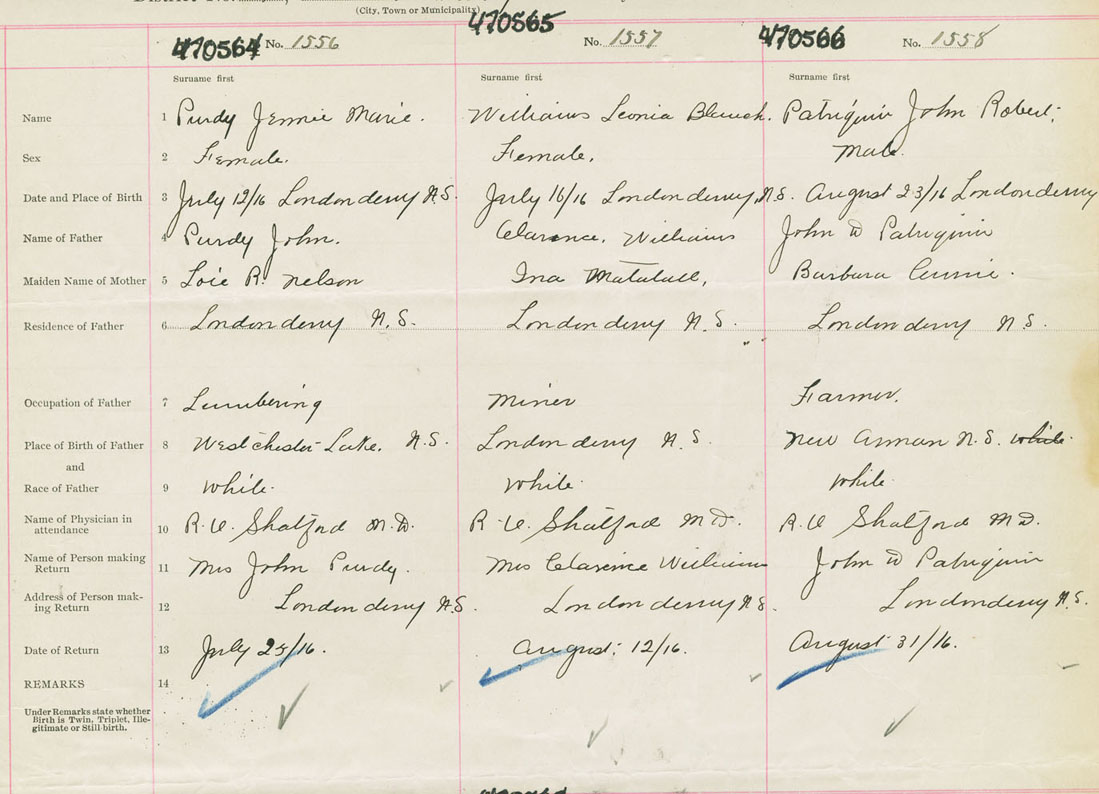 (City, Town or Municipality)
470564 No. 1556 470565 No. 1557 470566 No. 1558
Surname first Surname first Surname first
Name 1 Purdy Jennie Marie. Williams Leonia Blanch. Patriquin John Robert.
Sex 2 Female. Female. Male.
Date and Place of Birth 3 July 12/16 Londonderry N.S. July 16/16 Londonderry, N.S. August 23/16 Londonderry
Name of Father 4 Purdy John. Clarence Williams John W Patriquin
Maiden Name of Mother 5 Loie R. Nelson Ina Matatall, Barbara
Residence of Father 6 Londonderry N.S. Londonderry N.S. Londonderry N.S.
Occupation of Father 7 Lumbering Miner Farmer.
Place of Birth of Father 8 Westchester Lake, N.S. Londonderry N.S. New Annan N.S. white
and
Race of Father 9 White. White. White.
Name of Physician in
attendance 10 Shatford M.D. Shatford M.D. Shatford M.D.
Name of Person making
Return 11 Mrs John Purdy. Mrs Clarence Williams John W Patriquin
Address of Person mak-
ing Return 12 Londonderry N.S. Londonderry N.S. Londonderry N.S.
Date of Return 13 July 25/16. August 12/16. August 31/16.
REMARKS 14
Under Remarks state whether
Birth is Twin, Triplet, Ille-
gitimate or Still-birth.